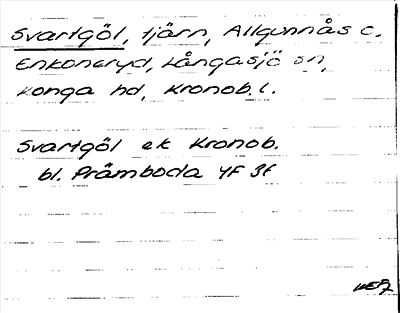 Svartgöl, tjärn, Allgunnås c.
Enkoneryd, Långasjö sn,
Konga hd, Kronob. l.
Svartgöl ek Kronob.
bl. Pråmboda 4F 3f